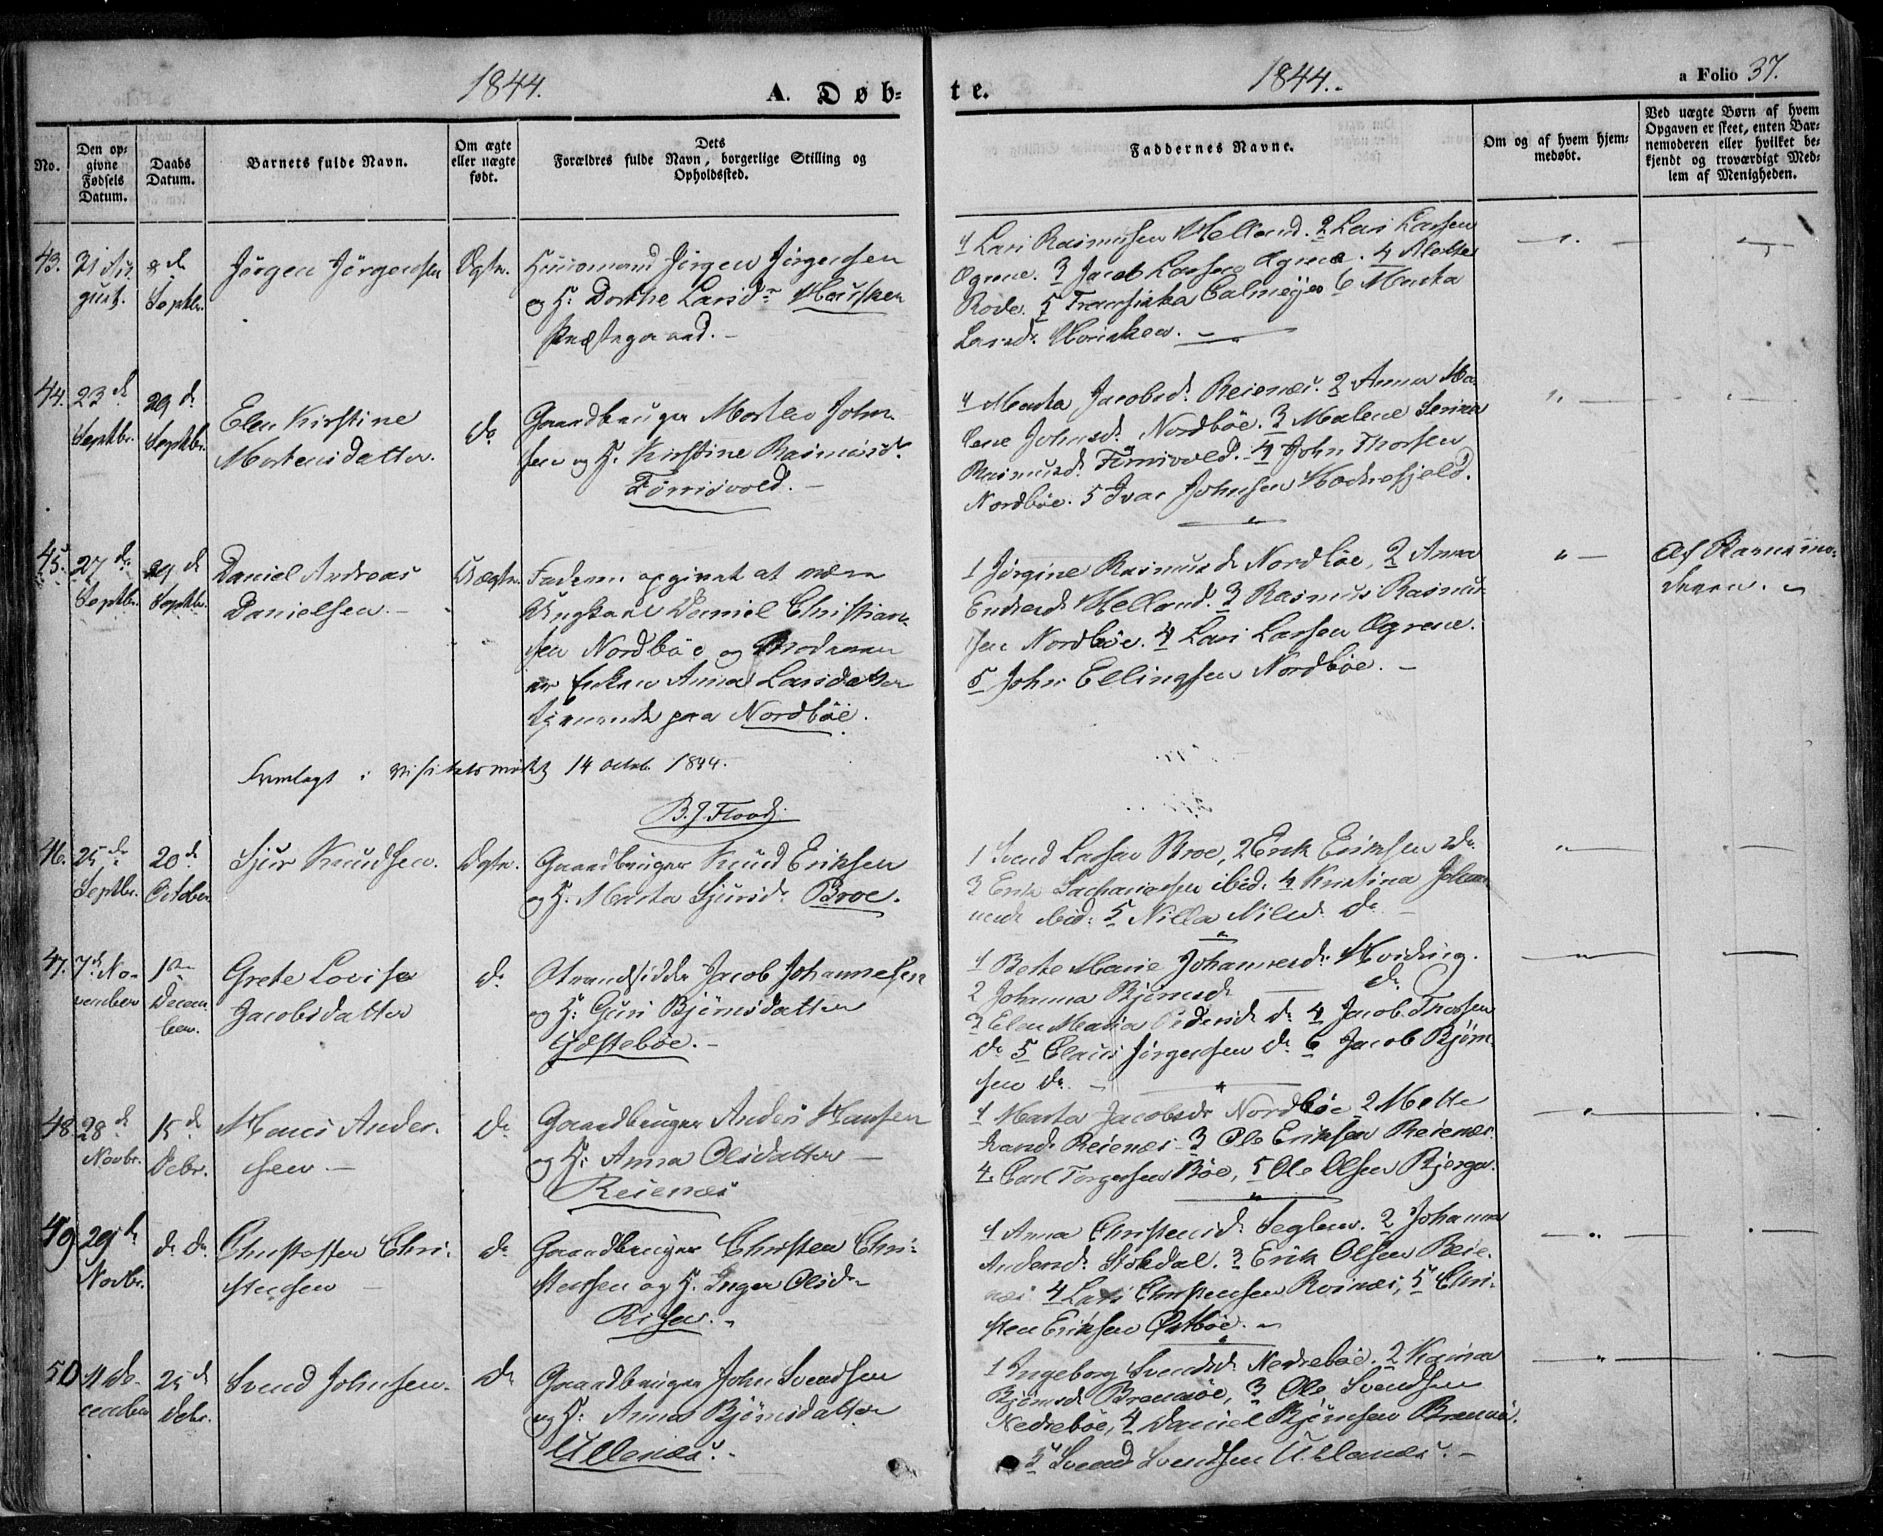 1844.
A. Døb-
te.
1844.
a Folio 37.
No.
Den op-
givne
Fødsels
Datum.
Daabs
Datum.
Barnets fulde Navn.
Om ægte
eller uægte
født.
Dets
Forældres fulde Navn, borgerlige Stilling og
Opholdssted.
Faddernes Navne.
Om og af hvem hjem-
medøbt.
Ved uægte Børn af hvem
Opgaven er skeet, enten Bar-
nemoderen eller hvilket be-
kjendt og troværdigt Med-
lem af Menigheden.
43.
21 Au-
gust.
8de
Septbr.
Jörgen Jörgensen
Ægte.
Huusmand Jörgen Jörgensen
og H: Dorthe Larsdr Housken
Præstegaard. -
1 Lars Rasmusen Helland. 2 Lars Larsen
Ogrene. 3 Jacob Larsen Ogrene. 4 Mette
Rode. 5 Fransiska Calmeyer 6 Marta
Larsdr Housken.
44.
23de
Septbr.
29de
Septbr.
Elen Kirstine
Mortensdatter.
do
Gaardbruger Morten John-
sen og H. Kirstine Rasmusdr
Tørrisvold. -
1 Marta Jacobsdr Reienæs. 2 Anna Ma-
lene Johnsdr Nordböe. 3 Malene Serina
Rasmusdr Tørrisvold. 4 John Thorsen
Nordböe. 5 Ivar Johnsen Hodnefjeld.
45.
27de
Septbr.
29de
Septbr.
Daniel Andreas
Danielsen. -
Uægte.
Faderen opgivet at være
Ungkarl Daniel Christian-
sen Nordböe og Moderen
er Enken Anna Larsdatter
tjenende paa Nordböe.
1 Jörgine Rasmusdr Nordböe, 2 Anna
Endresdr Helland. 3 Rasmus Rasmus-
sen Nordböe. 4 Lars Larsen Ogrene.
5 John Ellingsen Nordböe. -
Af Barnemo-
deren.
Fremlagt i Visitatsmødet 14 Octob. 1844.
B. J. Flood
46.
25de
Septbr.
20de
October
Sjur Knudsen.
Ægte.
Gaardbruger Knud Eriksen
og H. Marta Sjursdr Broe.
1 Svend Larsen Broe, 2 Erik Eriksen do
3 Erik Sachariasen ibid: 4 Kristina Johan-
nesdr ibid: 5 Nilla Nilsdr do
47.
7de No-
vember
1ste
Decem-
ber.
Grete Lovise
Jacobsdatter
do
Strandsidder Jacob Johannesen
og H: Guri Björnsdatter
Göstebøe. -
1 Berte Marie Johannesdr Hviding.
2 Johanna Björnsdr do
3 Elen Maria Pedersdr do 4 Jacob Thorsen
do 5 Claus Jörgensen do 6 Jacob Bjørn-
sen do. -
48.
28de
Novbr.
15de
Debr.
Hans Ander-
sen. -
do
Gaardbruger Anders Hansen
og H: Anna Olsdatter
Reienæs
1 Marta Jacobsdr Nordböe 2 Mette
Reienæs 3 Ole Eriksen Reienæs
4. Carl Torgersen Böe, 5 Ole Olsen Bjerga.
49
29de
Novbr.
do do
Christoffer Chri-
stensen
do
Gaardbruger Christen Chri-
stensen og H. Inger Olsdr
Risen.
1 Anna Christensdr Seglem. 2 Johanna
Andersdr Stokdal. 3 Erik Olsen Reie-
næs 4 Lars Christensen Roinæs, 5 Chri-
sten Eriksen Østböe.
50
4 De-
cember
25de
Debr.
Svend Johnsen.
do
Gaardbruger John Svendsen
og H: Anna Björnsdatter
Ullenæs. -
1 Ingeborg Svendsdr Nedreböe. 2 Karina
Björnsdr Bremsöe, 3 Ole Svendsen
Nedreböe, 4 Daniel Björnsen
5 Svend Svendsen Ullenæs. -